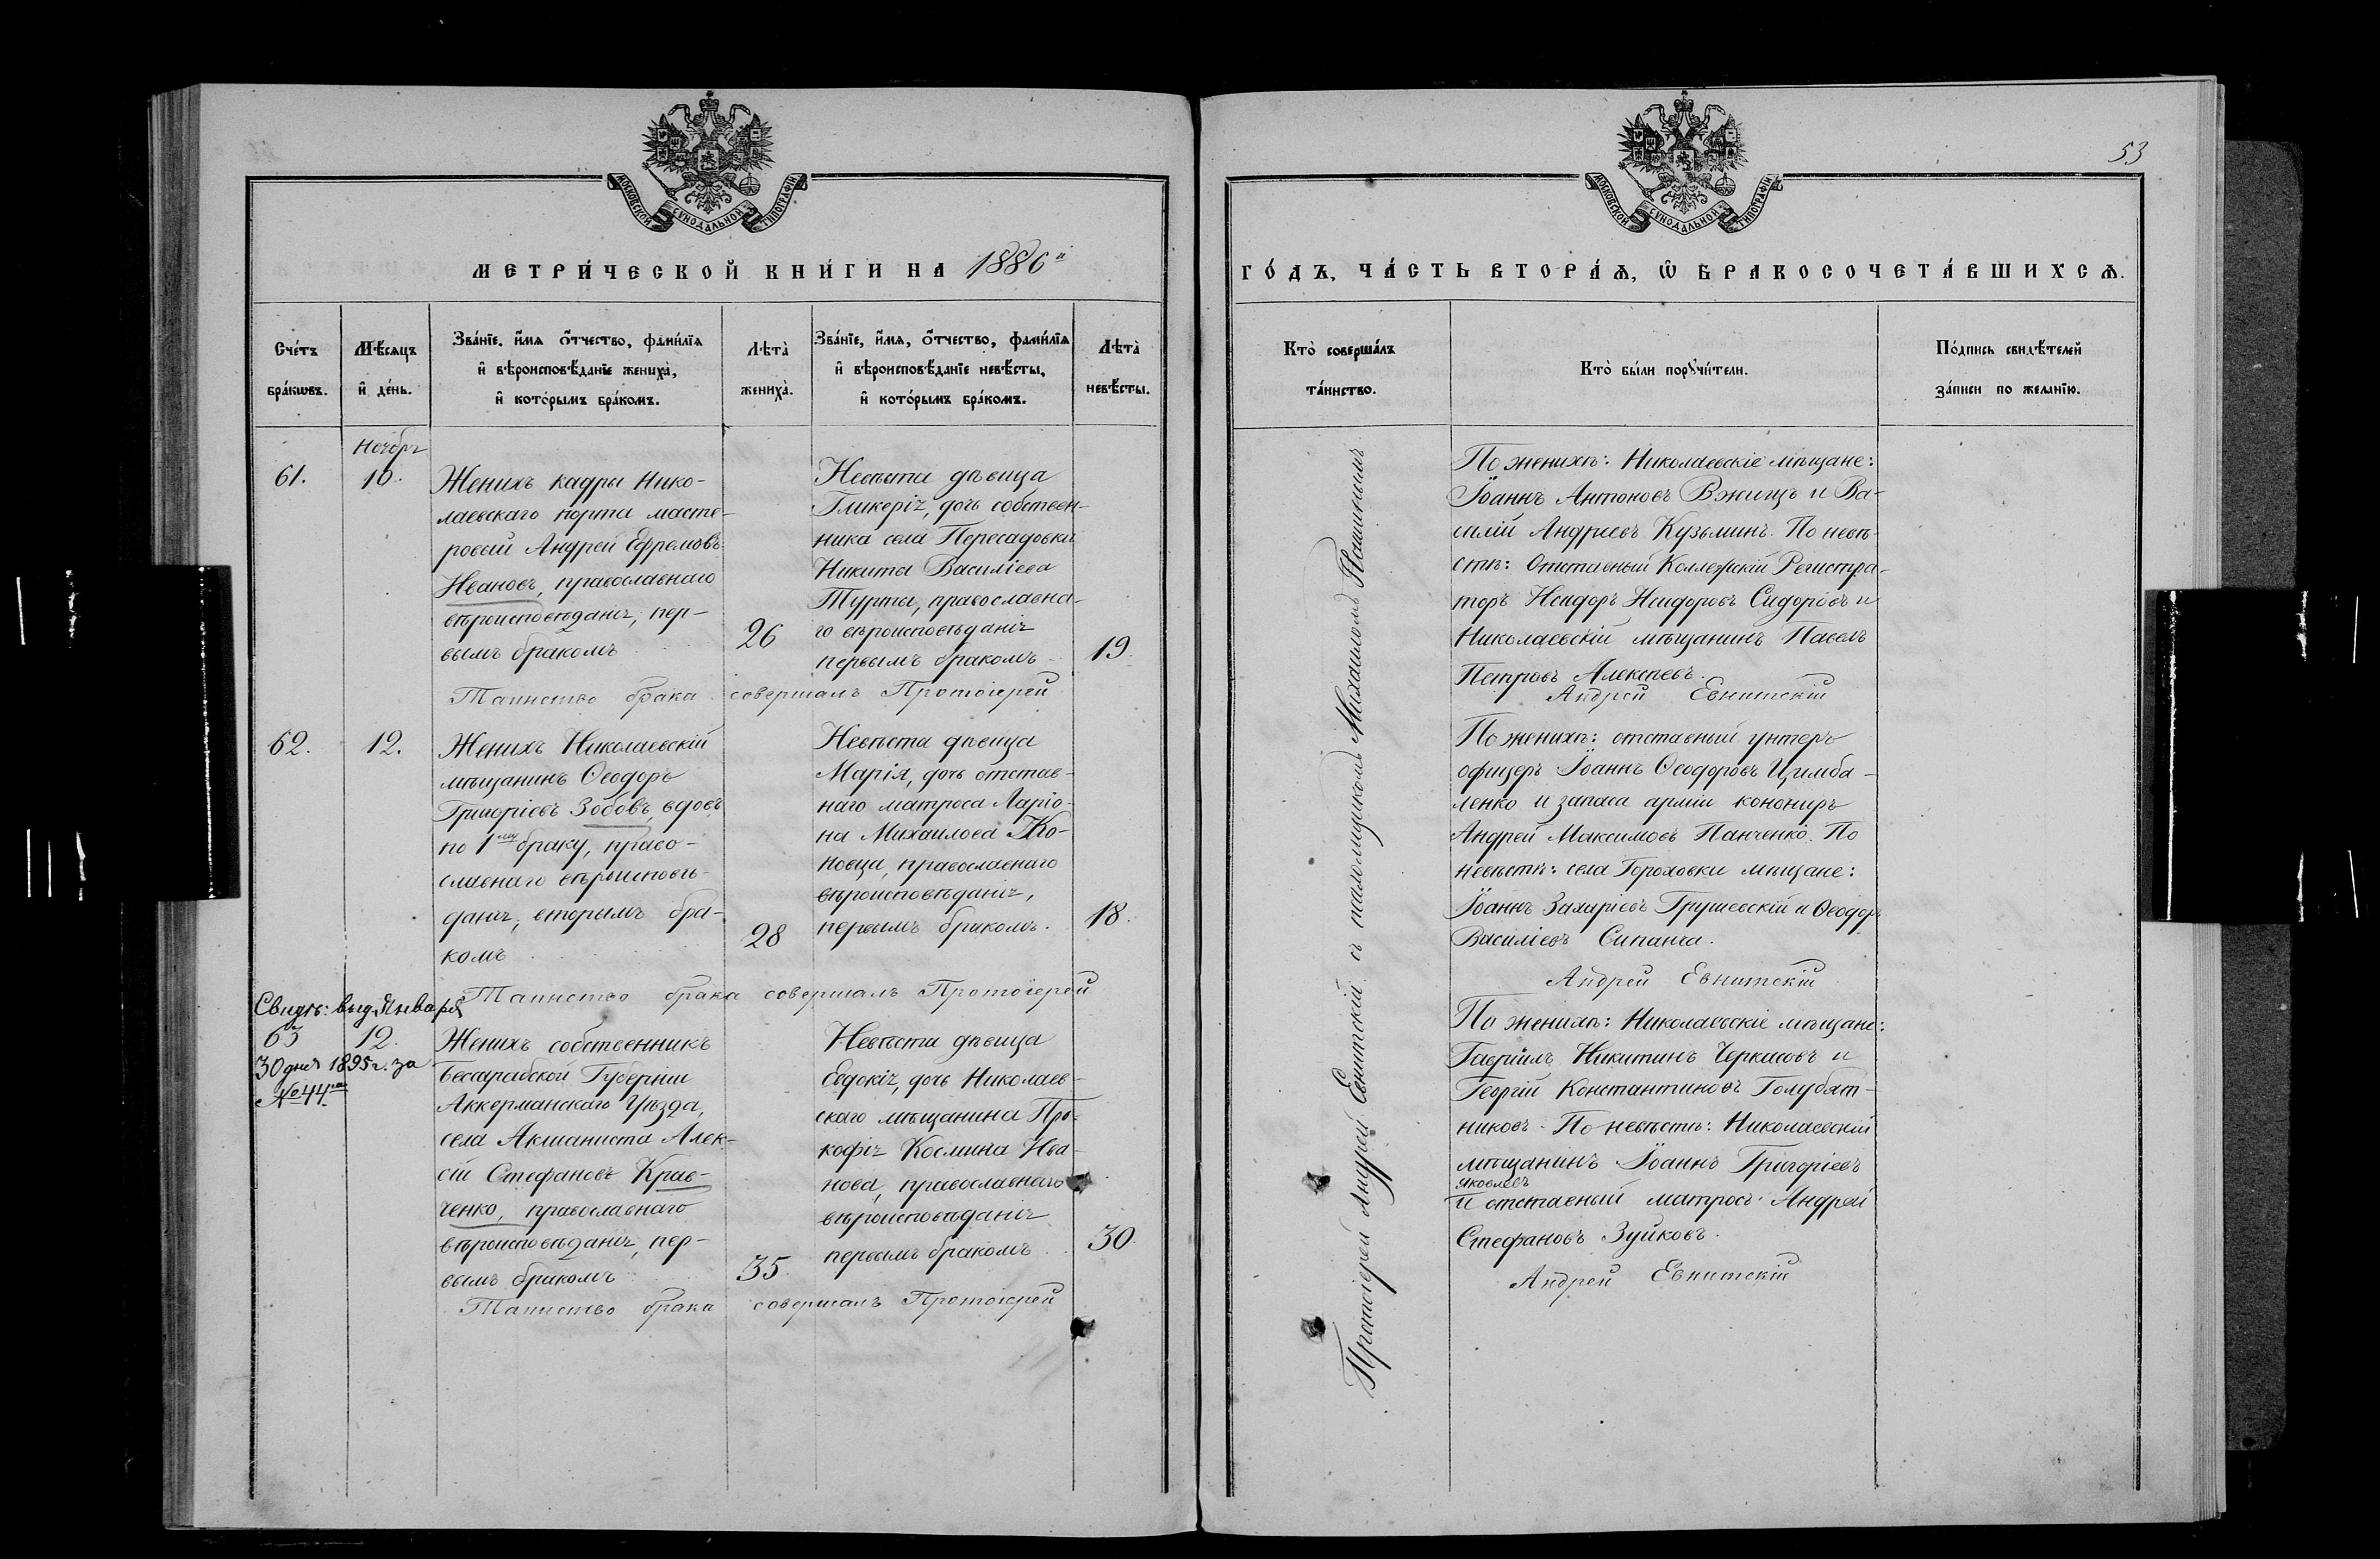 МОСКОВСКОЙ СѴНОДАЛЬНОЙ ТИПОГРАФІИ
МЕТРИ́ЧЕСКОЙ КНИ́ГИ НА 1886й
Сче́тъ бра́кѡвъ.
Мѣ́сяцъ и҆ де́нь.
Зва́нїе, и҆́мя ѻ҆́тчество, фами́лїя
и҆ вѣроисповѣ́данїе жениха̀,
и҆ кото́рымъ бра́комъ.
Лѣта̀ жениха̀.
Зва́нїе, и҆́мя, ѻ҆́тчество, фами́лїя
и҆ вѣроисповѣ́данїе невѣ́сты,
и҆ кото́рымъ бра́комъ.
Лѣта̀ невѣ́сты.
Ноябрь
61.
10.
Женихъ кадры Нико-
лаевскаго порта масте-
ровый Андрей Ефремовъ
Ивановъ, православнаго
вѣроисповѣданія, пер-
вымъ бракомъ
26
Невѣста дѣвица
Гликерія, дочь собствен-
ника села Пересадовки
Никита Василіева
Турты, православна-
го вѣроисповѣданія
первымъ бракомъ
19.
Таинство брака совершалъ Протоіерей
62.
12.
Женихъ Николаевскій
мѣщанинъ Ѳеодоръ
Григоріевъ Зобовъ, вдовъ
по 1му браку, право-
славнаго вѣроисповѣ-
данія, вторымъ бра-
комъ
28
Невѣста дѣвица
Марія, дочь отстав-
наго матроса Ларіо-
на Михаилова Ко-
новца, православнаго
вѣроисповѣданія,
первымъ бракомъ.
18.
Таинство брака совершалъ Протоіерей
Свидѣ: выд. Января
63
12.
30 дня 1895 г. за
№ 44
Женихъ собственникъ
Бесарабской Губерніи
Аккерманскаго Уѣзда,
села Акмангита Алек-
сій Стефановъ Крав-
ченко, православнаго
вѣроисповѣданія, пер-
вымъ бракомъ
35
Невѣста дѣвица
Евдокія, дочь Николаев-
скаго мѣщанина Про-
кофія Космина Ива-
нова, православнаго
вѣроисповѣданія
первымъ бракомъ
30.
Таинство брака совершалъ Протоіерей
53
МОСКОВСКОЙ СѴНОДАЛЬНОЙ ТИПОГРАФІИ
ГО́ДЪ, ЧА́СТЬ ВТОРА́Ѧ, Ѡ҆ БРАКОСОЧЕТА́ВШИХСѦ.
Кто̀ соверша́лъ
та́инство.
Кто̀ бы́ли порꙋчи́тели.
По́дпись свидѣ́телей
за́писи по жела́нїю.
Протоіерей Андрей Евнитскій съ псаломщикомъ Михаиломъ
По женихѣ: Николаевскіе мѣщане:
Іоаннъ Антоновъ Вжищъ и Ва-
силій Андреевъ Кузьминъ. По невѣ-
стѣ: Отставный Коллежскій Регистра-
торъ Исидоръ Исидоровъ Сидоровъ и
Николаевскій мѣщанинъ Павелъ
Петровъ Алексѣевъ.
Андрей Евнитскій
По женихѣ: отставный унтеръ
офицеръ Іоаннъ Ѳеодоровъ Цимба-
ленко и запаса арміи канониръ
Андрей Максимовъ Панченко. По
невѣстѣ: села Гороховки мѣщане:
Іоаннъ Захаріевъ Грушевскій и Ѳеодоръ
Василіевъ Сипанча.
Андрей Евнитскій
По женихѣ: Николаевскіе мѣщане:
Гавріилъ Никитинъ Черкасовъ и
Георгій Константиновъ Голубят-
никовъ. По невѣстѣ: Николаевскій
мѣщанинъ Іоаннъ Григоріевъ
Яковлевъ
и отставный матросъ Андрей
Стефановъ Зуйковъ.
Андрей Евнитскій